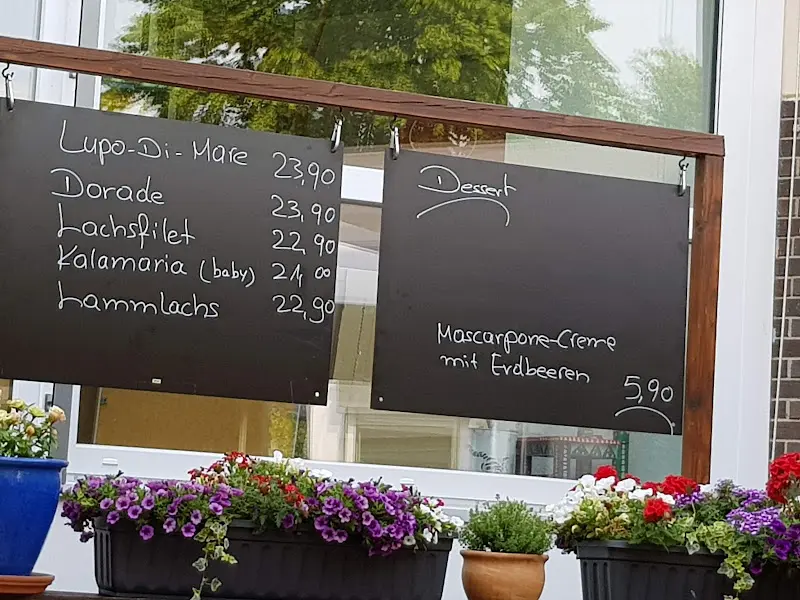 Lupo-Di-Mare 23,90
Dorade 23,90
Lachsfilet 22,90
Kalamaria (baby) 21,00
Lammlachs 22,90
Dessert
Mascarpone-Creme
mit Erdbeeren
5,90